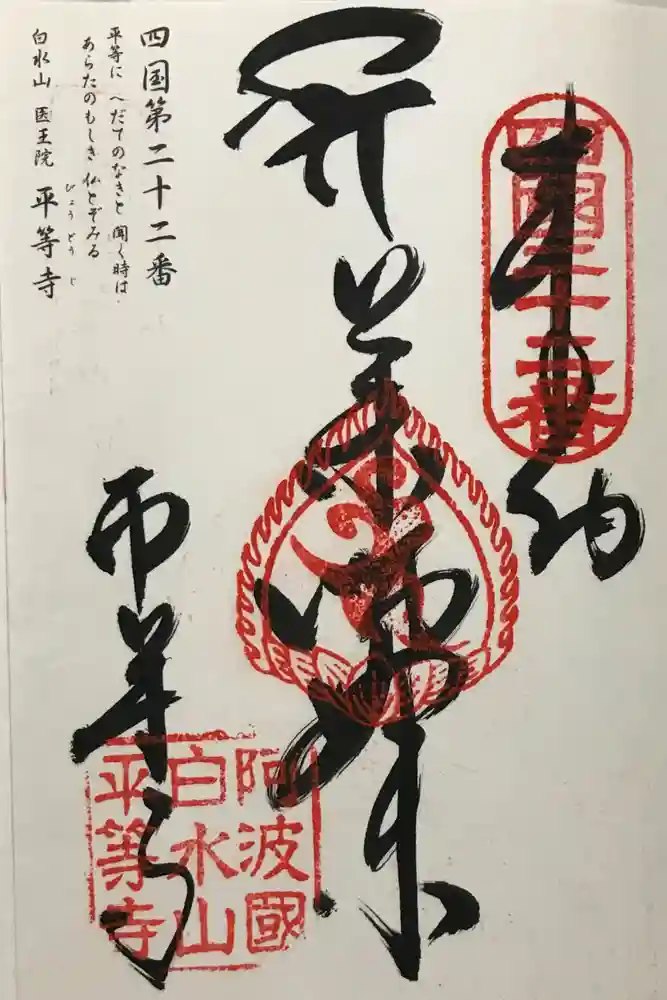 奉納
四國二十二番
薬師如来
平等寺
阿波國
白水山
平等寺
四国第二十二番
平等に へだてのなきと 聞く時は
あらたのもしき 仏とぞみる
白水山 医王院 平等寺
びょうどうじ